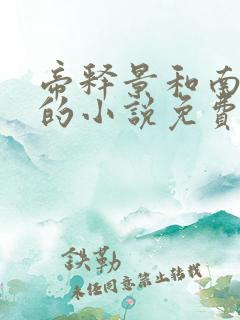 帝释景和南
的小说免费
鉄勒
未经同意禁止转载